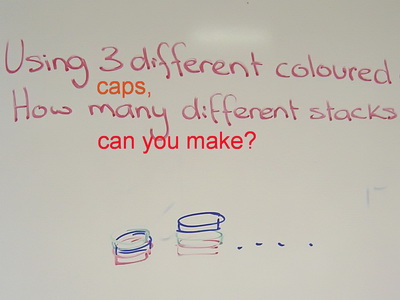 Using 3 different coloured
caps,
How many different stacks
can you make?